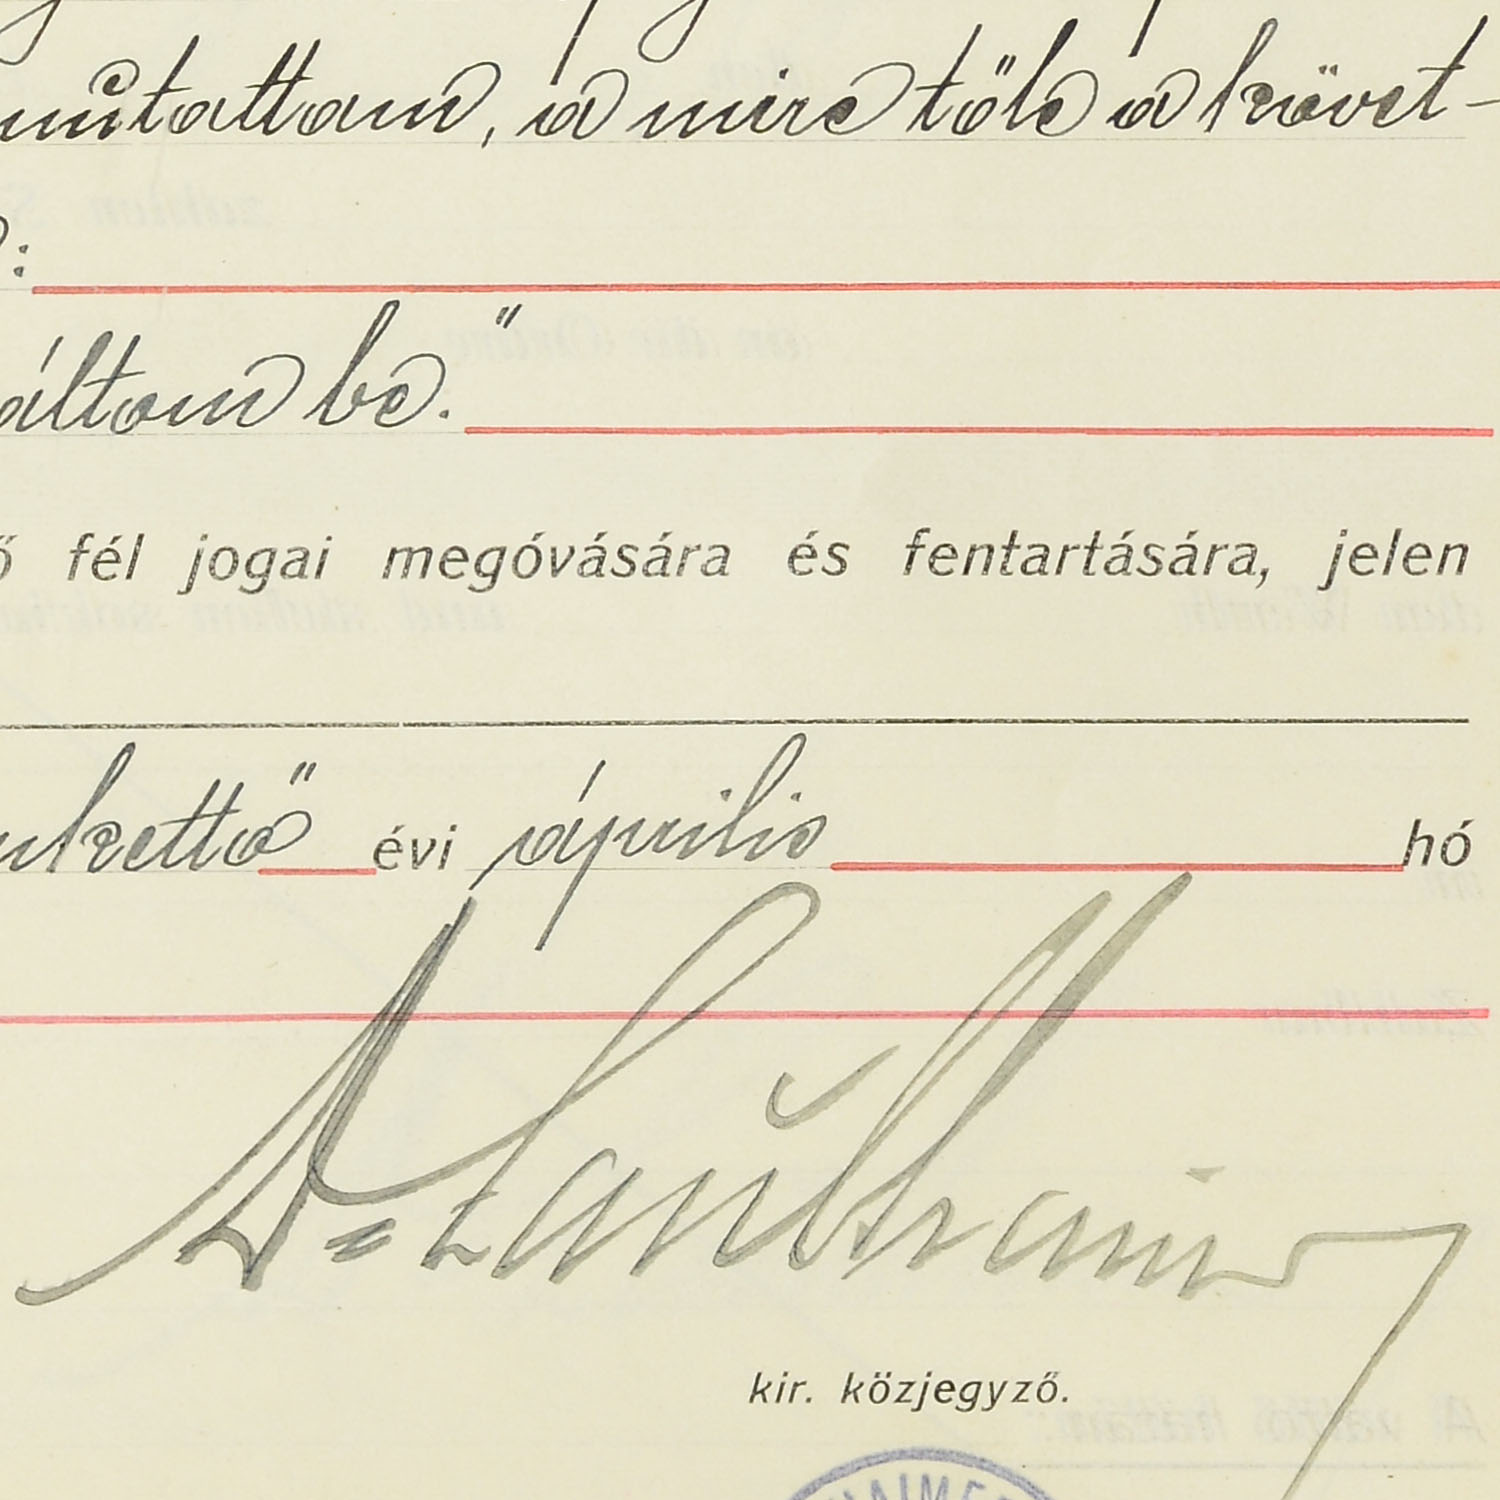 mutattam, a mire tőle a követ-
:
áltam be."
ő fél jogai megóvására és fentartására, jelen
kettő évi április hó
kir. közjegyző.